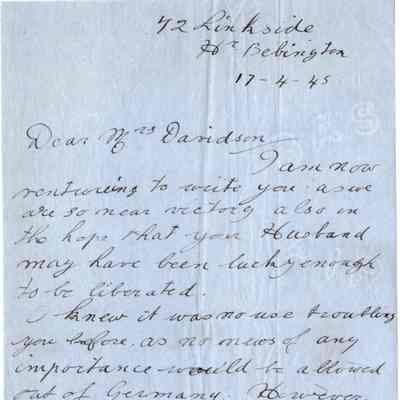 72 Linkside
Hr Bebington
17-4-45
Dear Mrs Davidson
I am now
venturing to write you as we
are so near victory also in
the hope that your Husband
may have been lucky enough
to be liberated.
I knew it was no use troubling
you before, as no news of any
importance would be allowed
out of Germany. However,